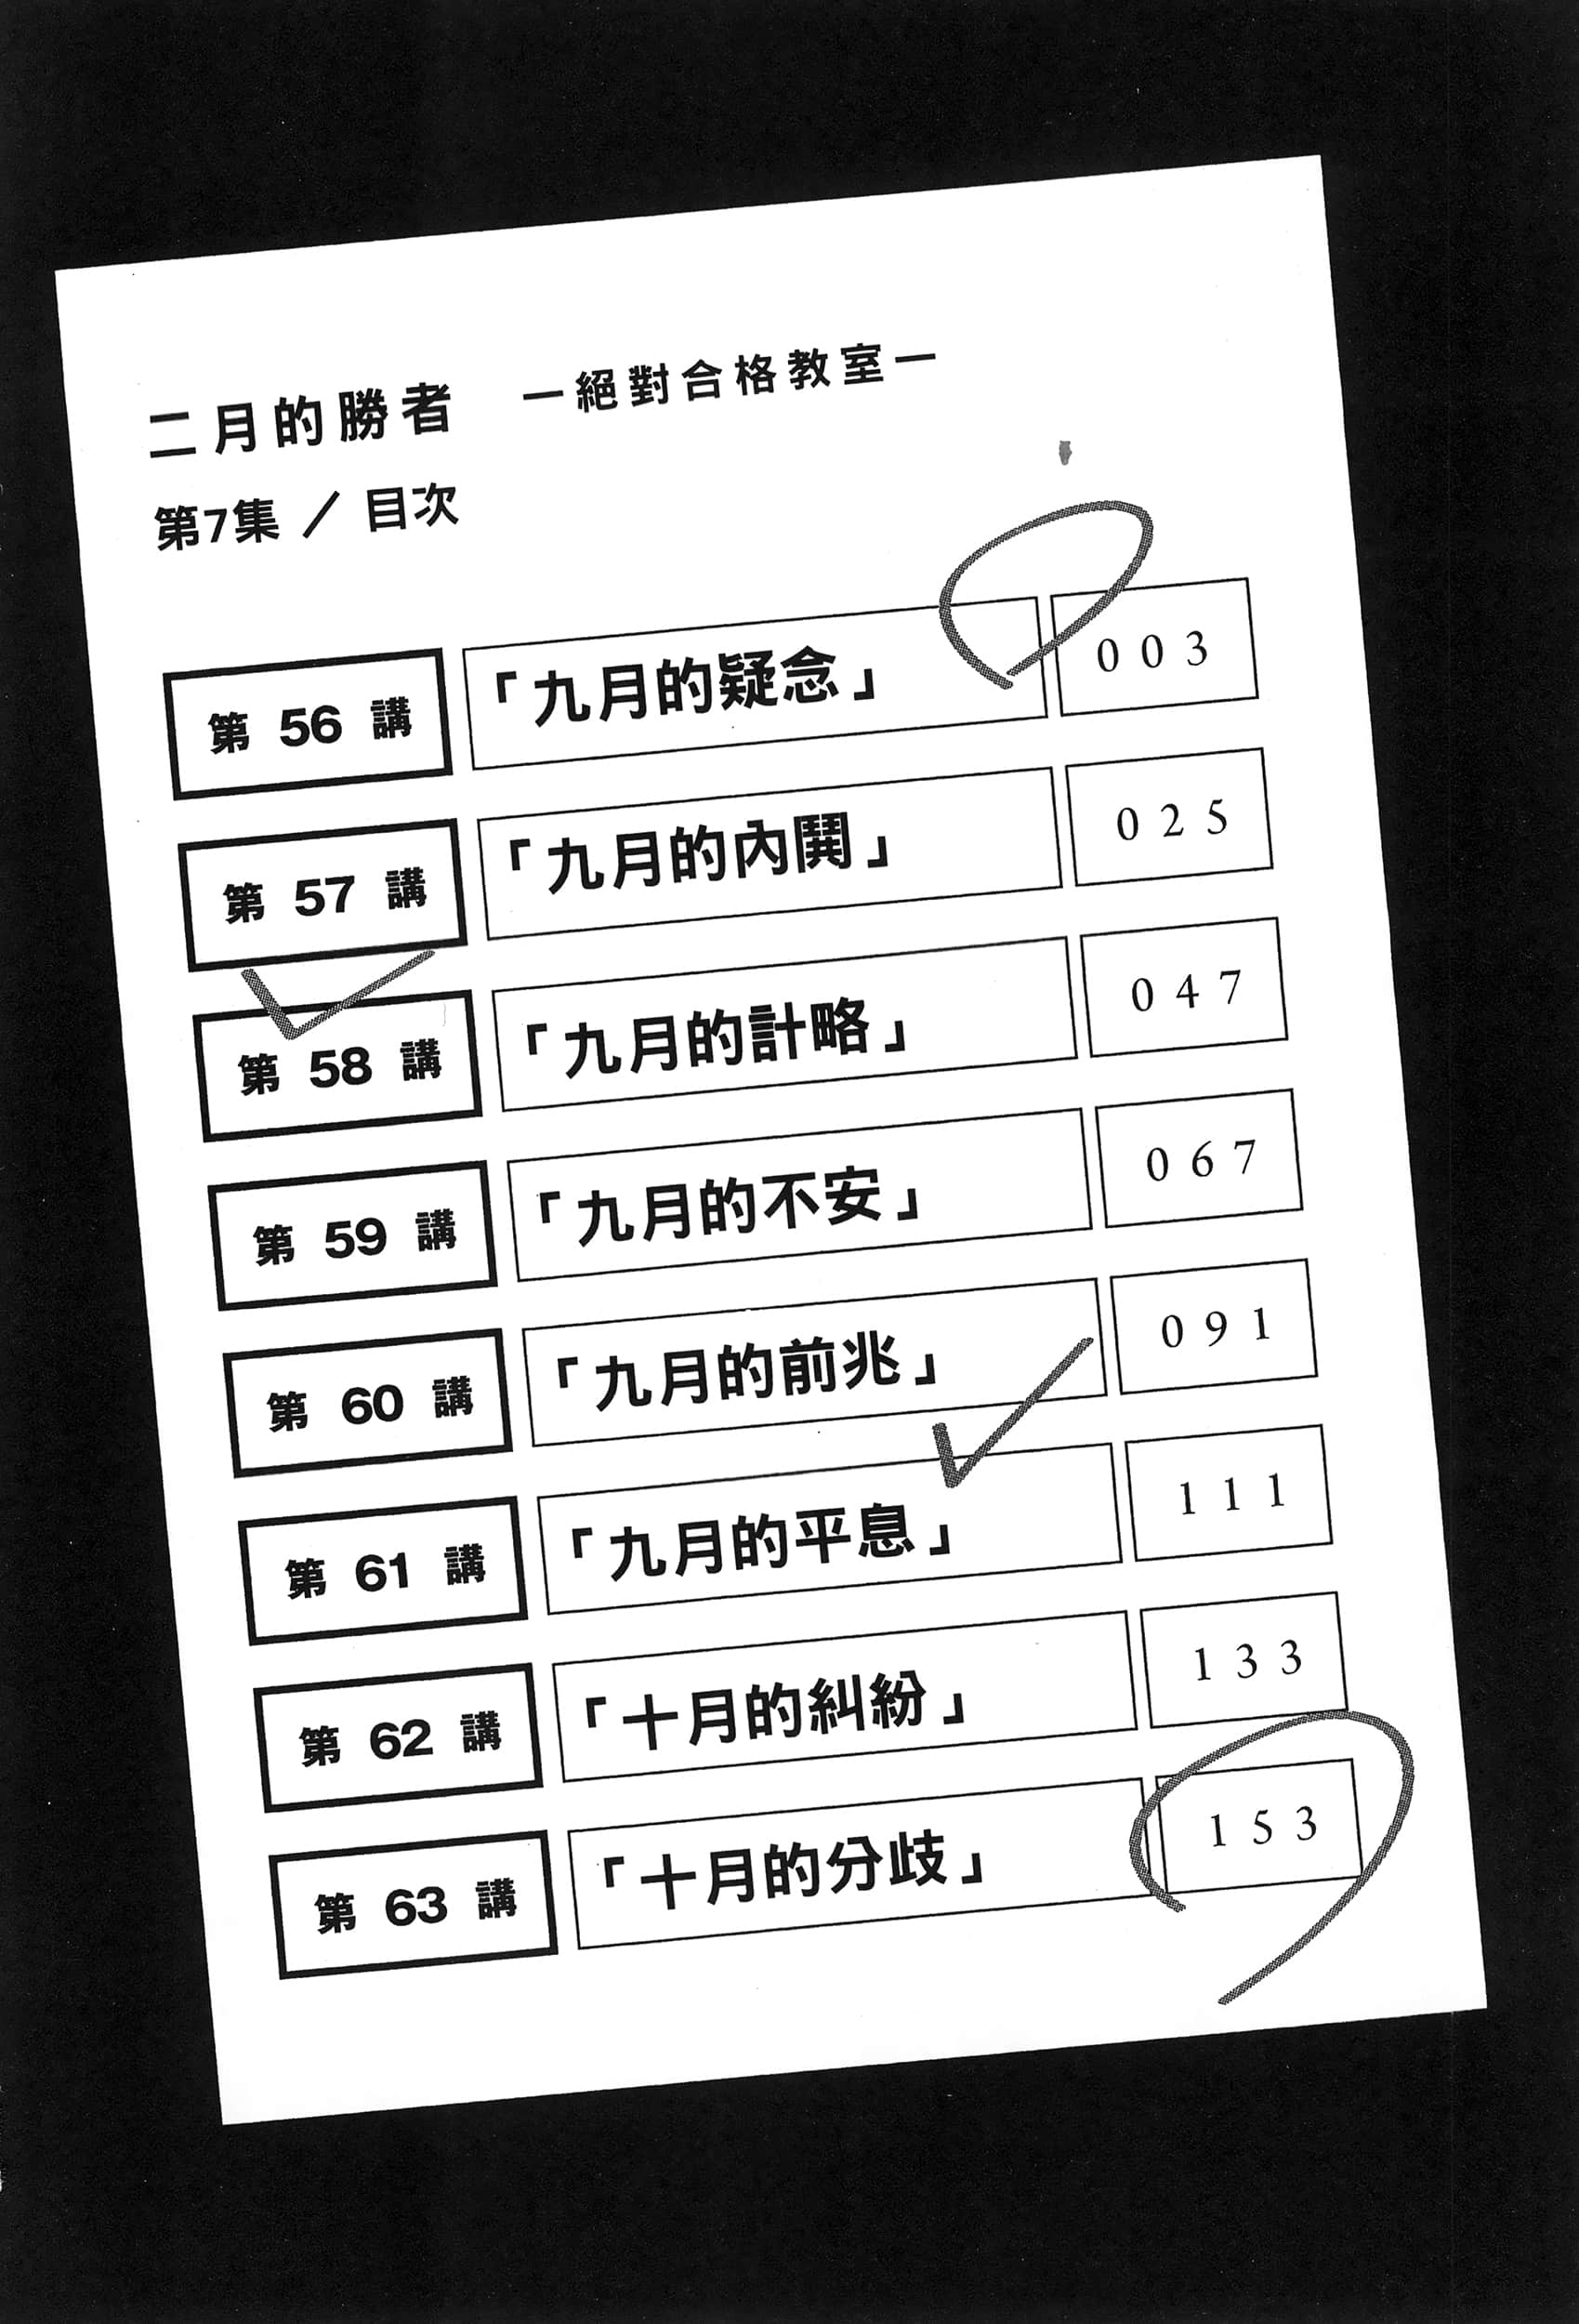 二月的勝者 —絕對合格教室—
第7集 / 目次
第 56 講 「九月的疑念」 003
第 57 講 「九月的內鬨」 025
第 58 講 「九月的計略」 047
第 59 講 「九月的不安」 067
第 60 講 「九月的前兆」 091
第 61 講 「九月的平息」 111
第 62 講 「十月的糾紛」 133
第 63 講 「十月的分歧」 153